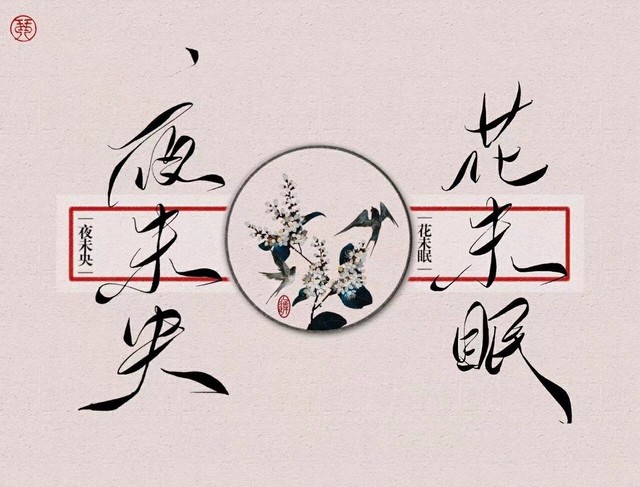 夜未央
夜未央
花未眠
花未眠